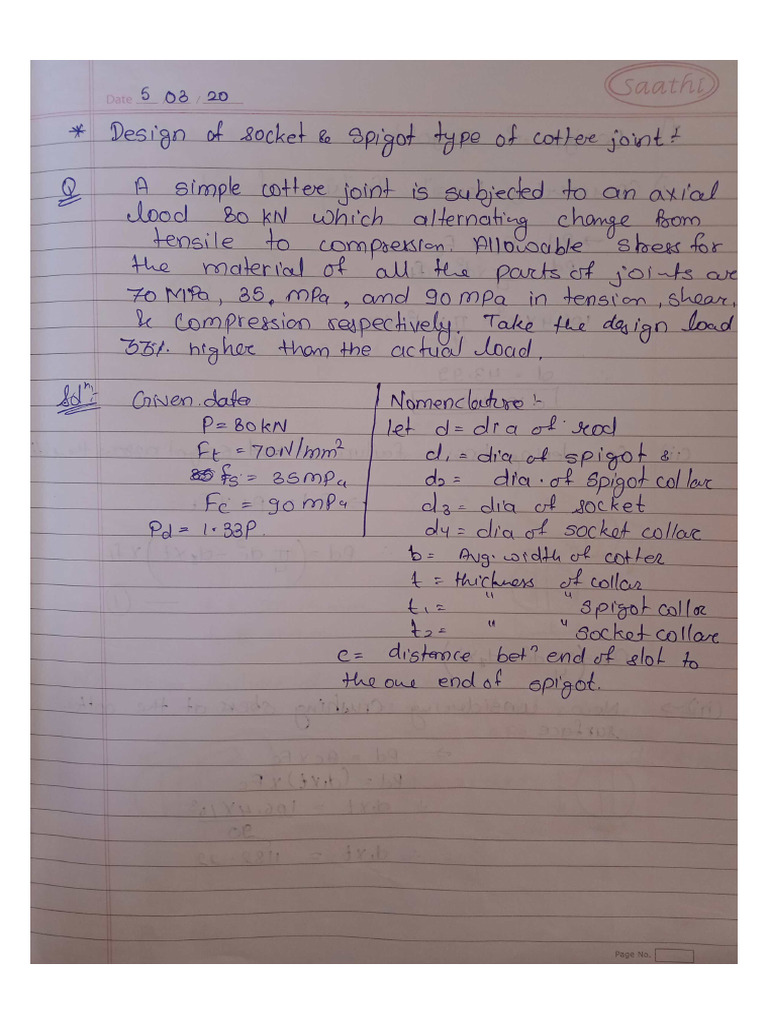 Saathi
Date 5 / 03 / 20
* Design of socket & spigot type of cotter joint :
Q A simple cotter joint is subjected to an axial
load 80 kN which alternating change from
tensile to compression. Allowable stress for
the material of all the parts of joints are
70 MPa, 35, mPa, and 90 mpa in tension, shear,
& compression respectively. Take the design load
33% higher than the actual load.
Solⁿ:- Given data
P = 80 kN
Ft = 70 N/mm²
fs = 35 mPa
Fc = 90 mPa
Pd = 1.33P.
Nomenclature :-
let d = dia of rod
d₁ = dia of spigot &
d₂ = dia. of spigot collar
d₃ = dia of socket
d4 = dia of socket collar
b = Avg. width of cotter
t = thickness of collar
t₁ = " " spigot collar
t₂ = " " socket collar
c = distance betⁿ end of slot to
the one end of spigot.
Page No.